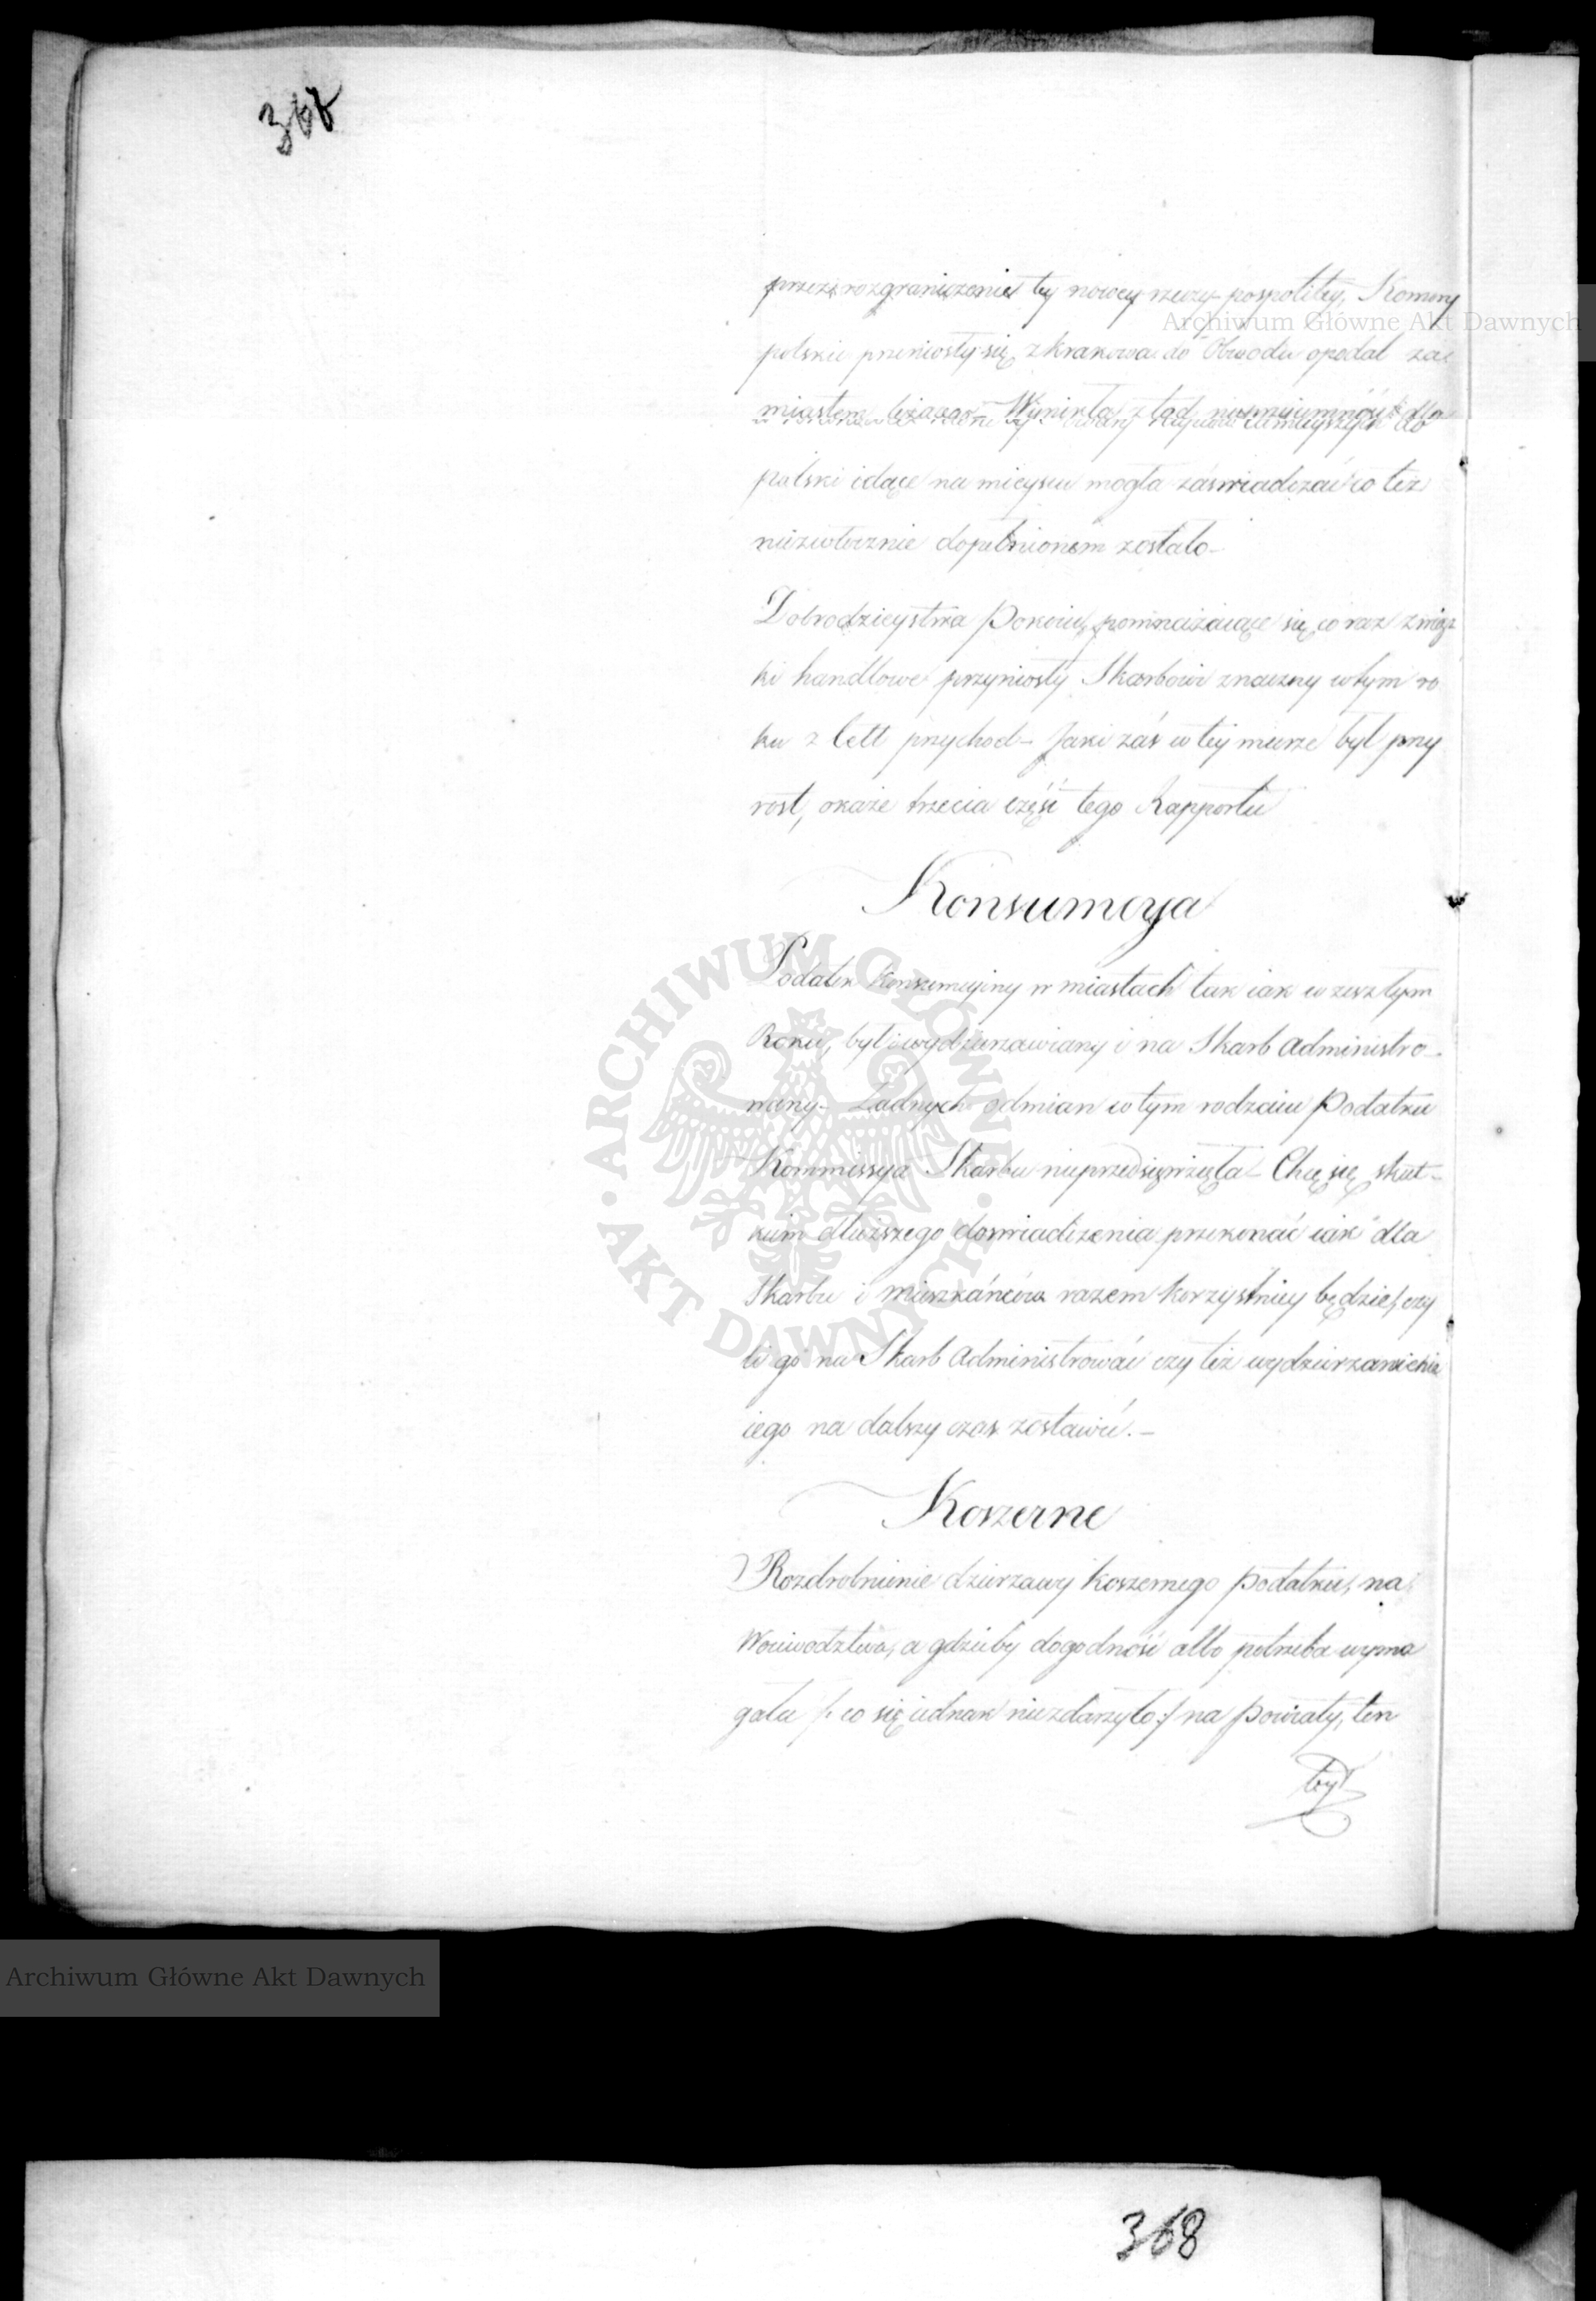 367
przez rozgraniczenie tey nowey rzeczy pospolitey, Komory
Archiwum Główne Akt Dawnych
polskie przeniosły się z Krakowa do Obwodu opodal za
miastem leżącego - Wynikła z tąd nieprzyiemność dla
tamteyszych do
polski idące na mieyscu mogła zaświadczać co też
niezwłocznie dopełnionem zostało -
Dobrodzieystwa Pokoiu, pomnażaiące się co raz związ
ki handlowe przyniosły Skarbowi znaczny w tym ro
ku z Cell przychod - Jaki zaś w tey mierze był przy
rost, okaże trzecia część tego Rapportu
Konsumcya
Podatek Konsumcyiny w miastach tak iak w zeszłym
Roku, był i wydzierzawiany i na Skarb Administro-
wany - Żadnych odmian w tym rodzaiu Podatku
Kommissya Skarbu nieprzedsięwzięła - Chcę się skut-
kiem dłuższego doswiadczenia przekonać iak dla
Skarbu i mieszkańców razem korzystniey będzie, czy
li go na Skarb Administrować czy też wydzierzawienie
iego na dalszy czas zostawić. -
Koszerne
Rozdrobnienie dzierzawy Koszernego Podatku, na
Woiewodztwa, a gdzieby dogodność albo potrzeba wyma
gała /: co się iednak niezdarzyło :/ na Powiaty, ten
był
ARCHIWUM GŁÓWNE · AKT DAWNYCH ·
Archiwum Główne Akt Dawnych
368